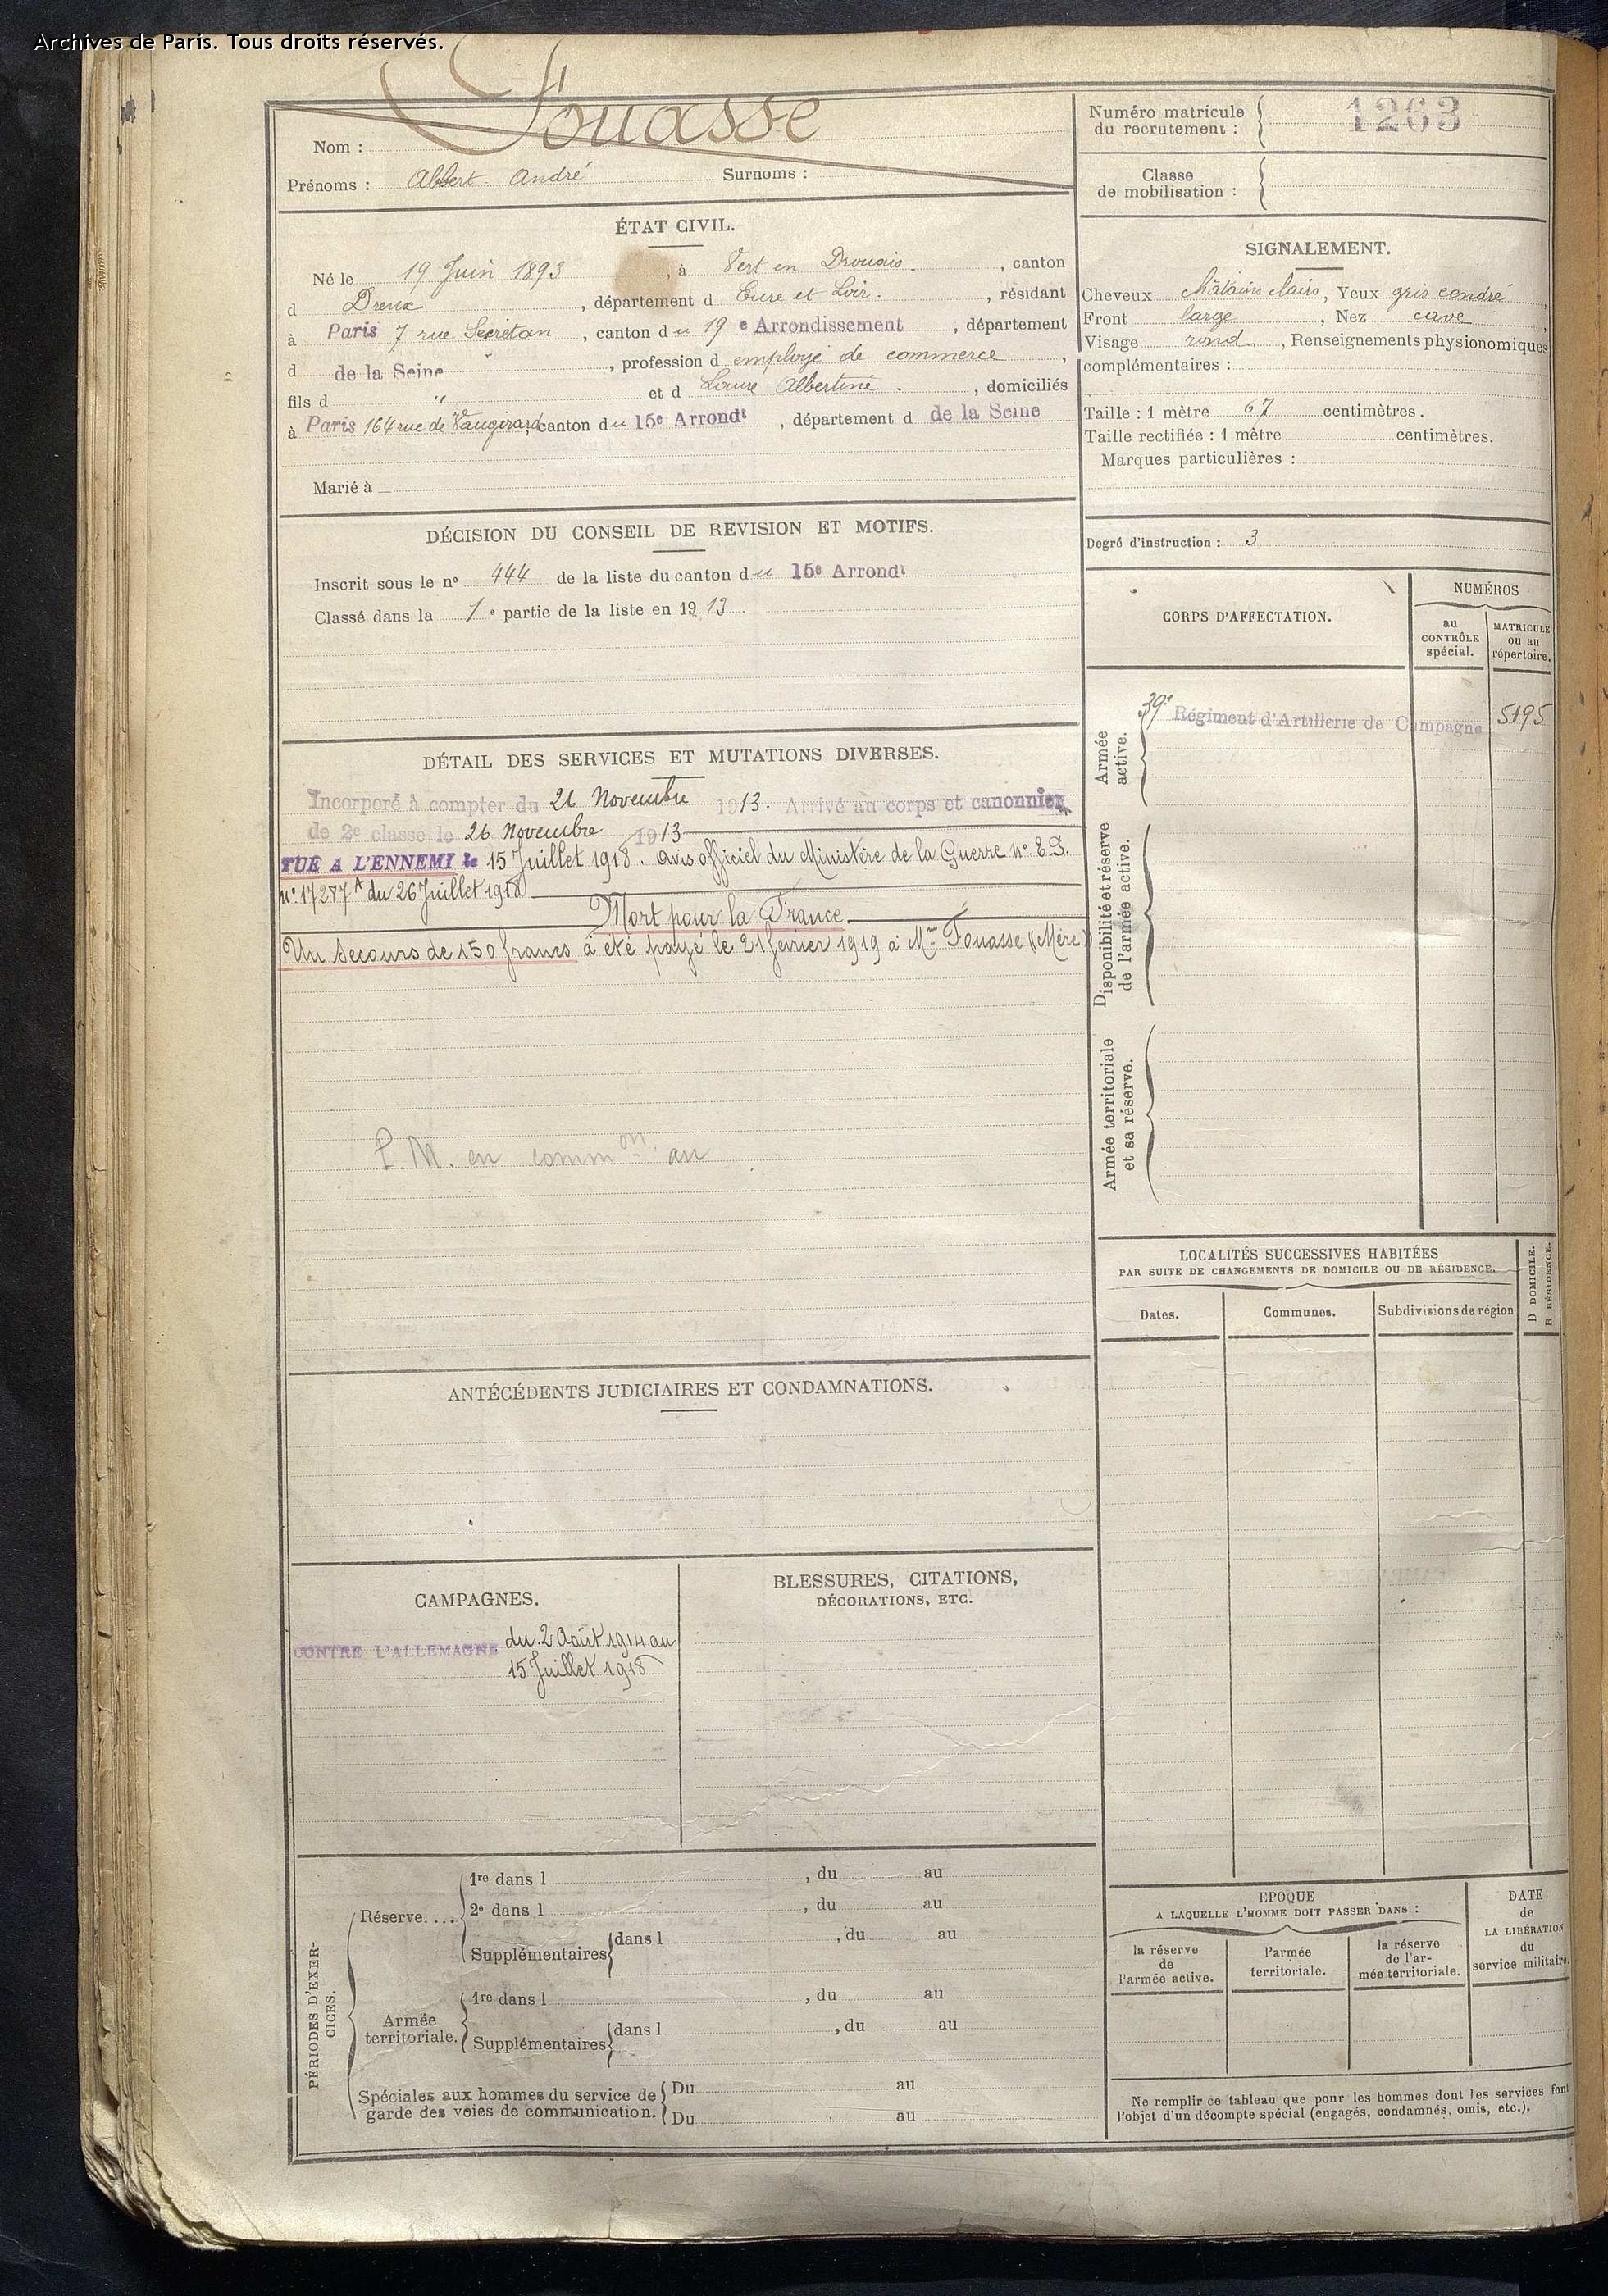 Archives de Paris. Tous droits réservés.
Nom : Fouasse
Prénoms : Albert André Surnoms :
Numéro matricule du recrutement : 1263
Classe de mobilisation :
ÉTAT CIVIL.
Né le 19 Juin 1893, à Vert en Drouais, canton
d Dreux, département d Eure et Loir, résidant
à Paris 7 rue Secrétan, canton du 19e Arrondissement, département
d de la Seine, profession d employé de commerce,
fils d " et d Laure Albertine, domiciliés
à Paris 164 rue de Vaugirard, canton du 15e Arrondt, département d de la Seine
Marié à
SIGNALEMENT.
Cheveux châtains clairs, Yeux gris cendré
Front large, Nez cave
Visage rond, Renseignements physionomiques
complémentaires :
Taille : 1 mètre 67 centimètres.
Taille rectifiée : 1 mètre centimètres.
Marques particulières :
Degré d'instruction : 3
DÉCISION DU CONSEIL DE REVISION ET MOTIFS.
Inscrit sous le no 444 de la liste du canton du 15e Arrondt
Classé dans la 1e partie de la liste en 1913.
CORPS D'AFFECTATION.
NUMÉROS
au CONTRÔLE spécial.
MATRICULE ou au répertoire.
Armée active.
39e Régiment d'Artillerie de Campagne 5195
Disponibilité et réserve de l'armée active.
Armée territoriale et sa réserve.
DÉTAIL DES SERVICES ET MUTATIONS DIVERSES.
Incorporé à compter du 26 Novembre 1913. Arrivé au corps et canonnier
de 2e classe le 26 Novembre 1913
TUÉ A L'ENNEMI le 15 Juillet 1918. avis officiel du Ministère de la Guerre no E.S.
no 17287A du 26 Juillet 1918
Mort pour la France
Un secours de 150 francs a été payé le 21 février 1919 à Mme Fouasse (Mère)
P. M. en common au
LOCALITÉS SUCCESSIVES HABITÉES
PAR SUITE DE CHANGEMENTS DE DOMICILE OU DE RÉSIDENCE.
Dates.
Communes.
Subdivisions de région
D DOMICILE.
R RÉSIDENCE.
ANTÉCÉDENTS JUDICIAIRES ET CONDAMNATIONS.
CAMPAGNES.
CONTRE L'ALLEMAGNE du 2 Août 1914 au
15 Juillet 1918
BLESSURES, CITATIONS,
DÉCORATIONS, ETC.
PÉRIODES D'EXERCICES.
Réserve....
1re dans l , du au
2e dans l , du au
Supplémentaires dans l , du au
Armée territoriale.
1re dans l , du au
Supplémentaires dans l , du au
Spéciales aux hommes du service de garde des voies de communication.
Du au
Du au
EPOQUE
A LAQUELLE L'HOMME DOIT PASSER DANS :
la réserve de l'armée active.
l'armée territoriale.
la réserve de l'armée territoriale.
DATE de LA LIBÉRATION du service militaire.
Ne remplir ce tableau que pour les hommes dont les services font
l'objet d'un décompte spécial (engagés, condamnés, omis, etc.).